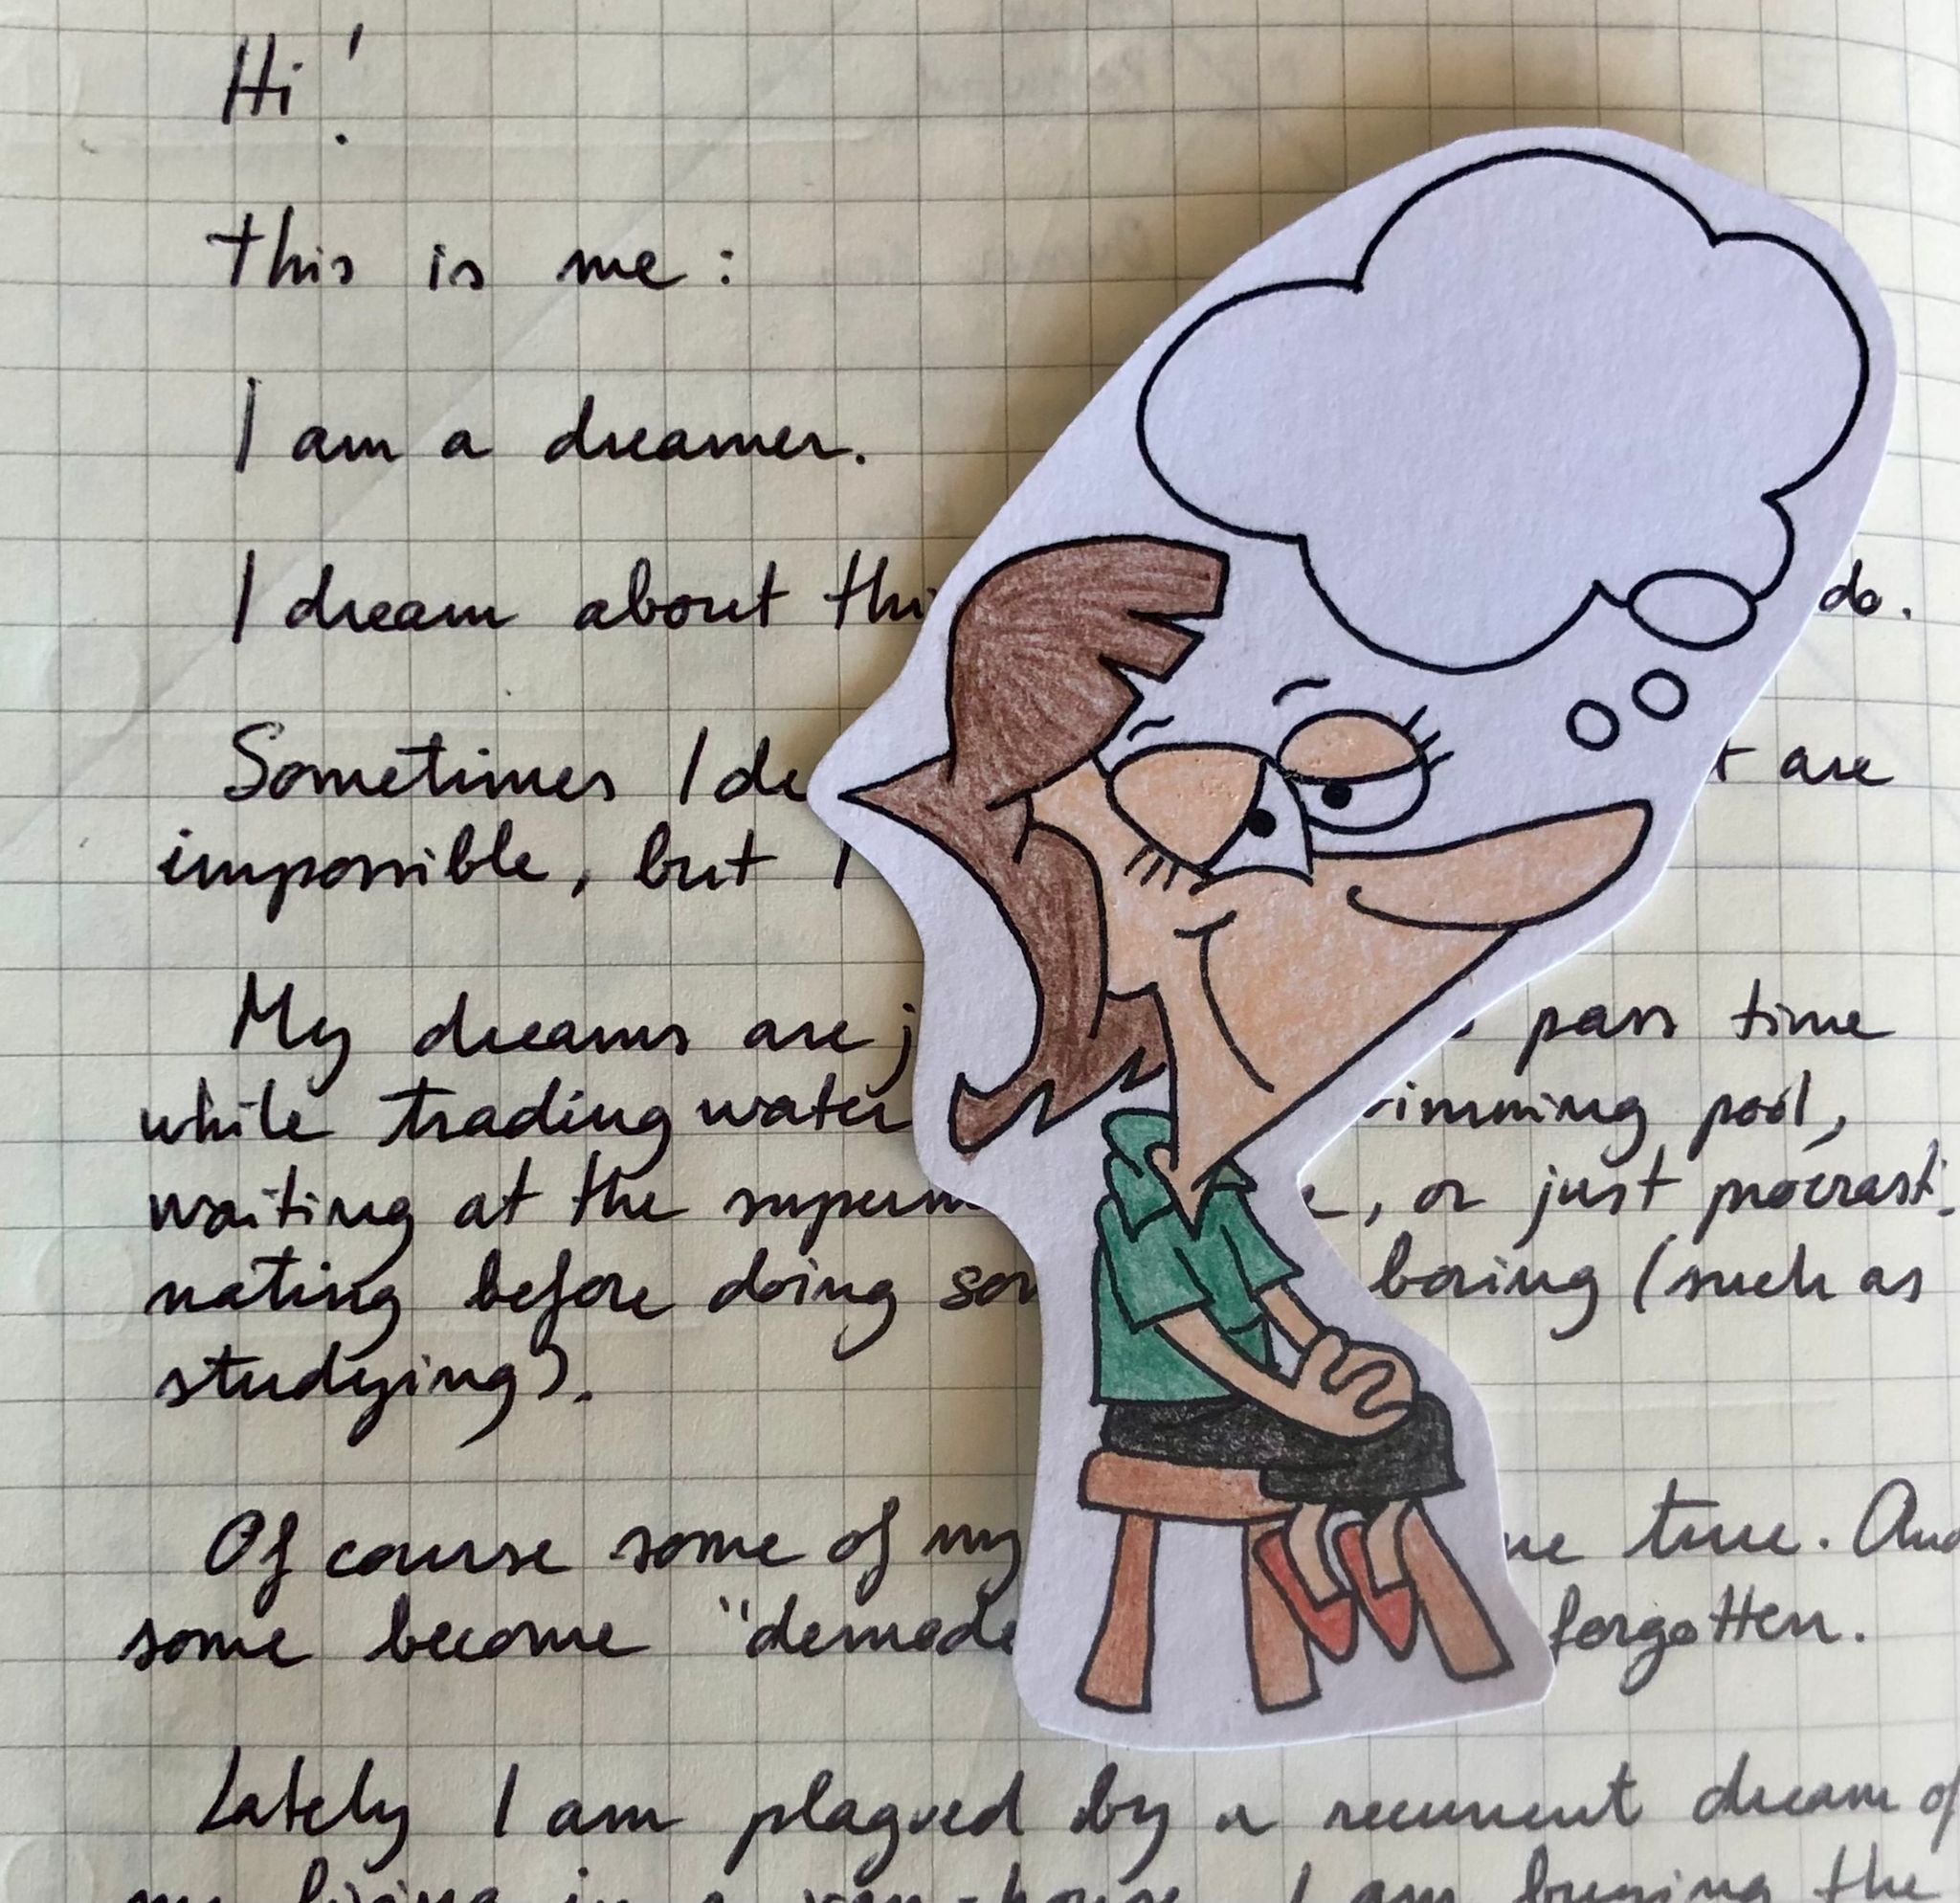 Hi!
this is me:
I am a dreamer.
I dream about thi do.
Sometimes I de t are
impossible, but I
My dreams are j pass time
while trading water imming pool,
waiting at the superm , or just procrasti-
nating before doing som boring (such as
studying).
Of course some of my me true. And
some become "demode forgotten.
Lately I am plagued by a recurrent dream of
me living in a van-house. I am buying the